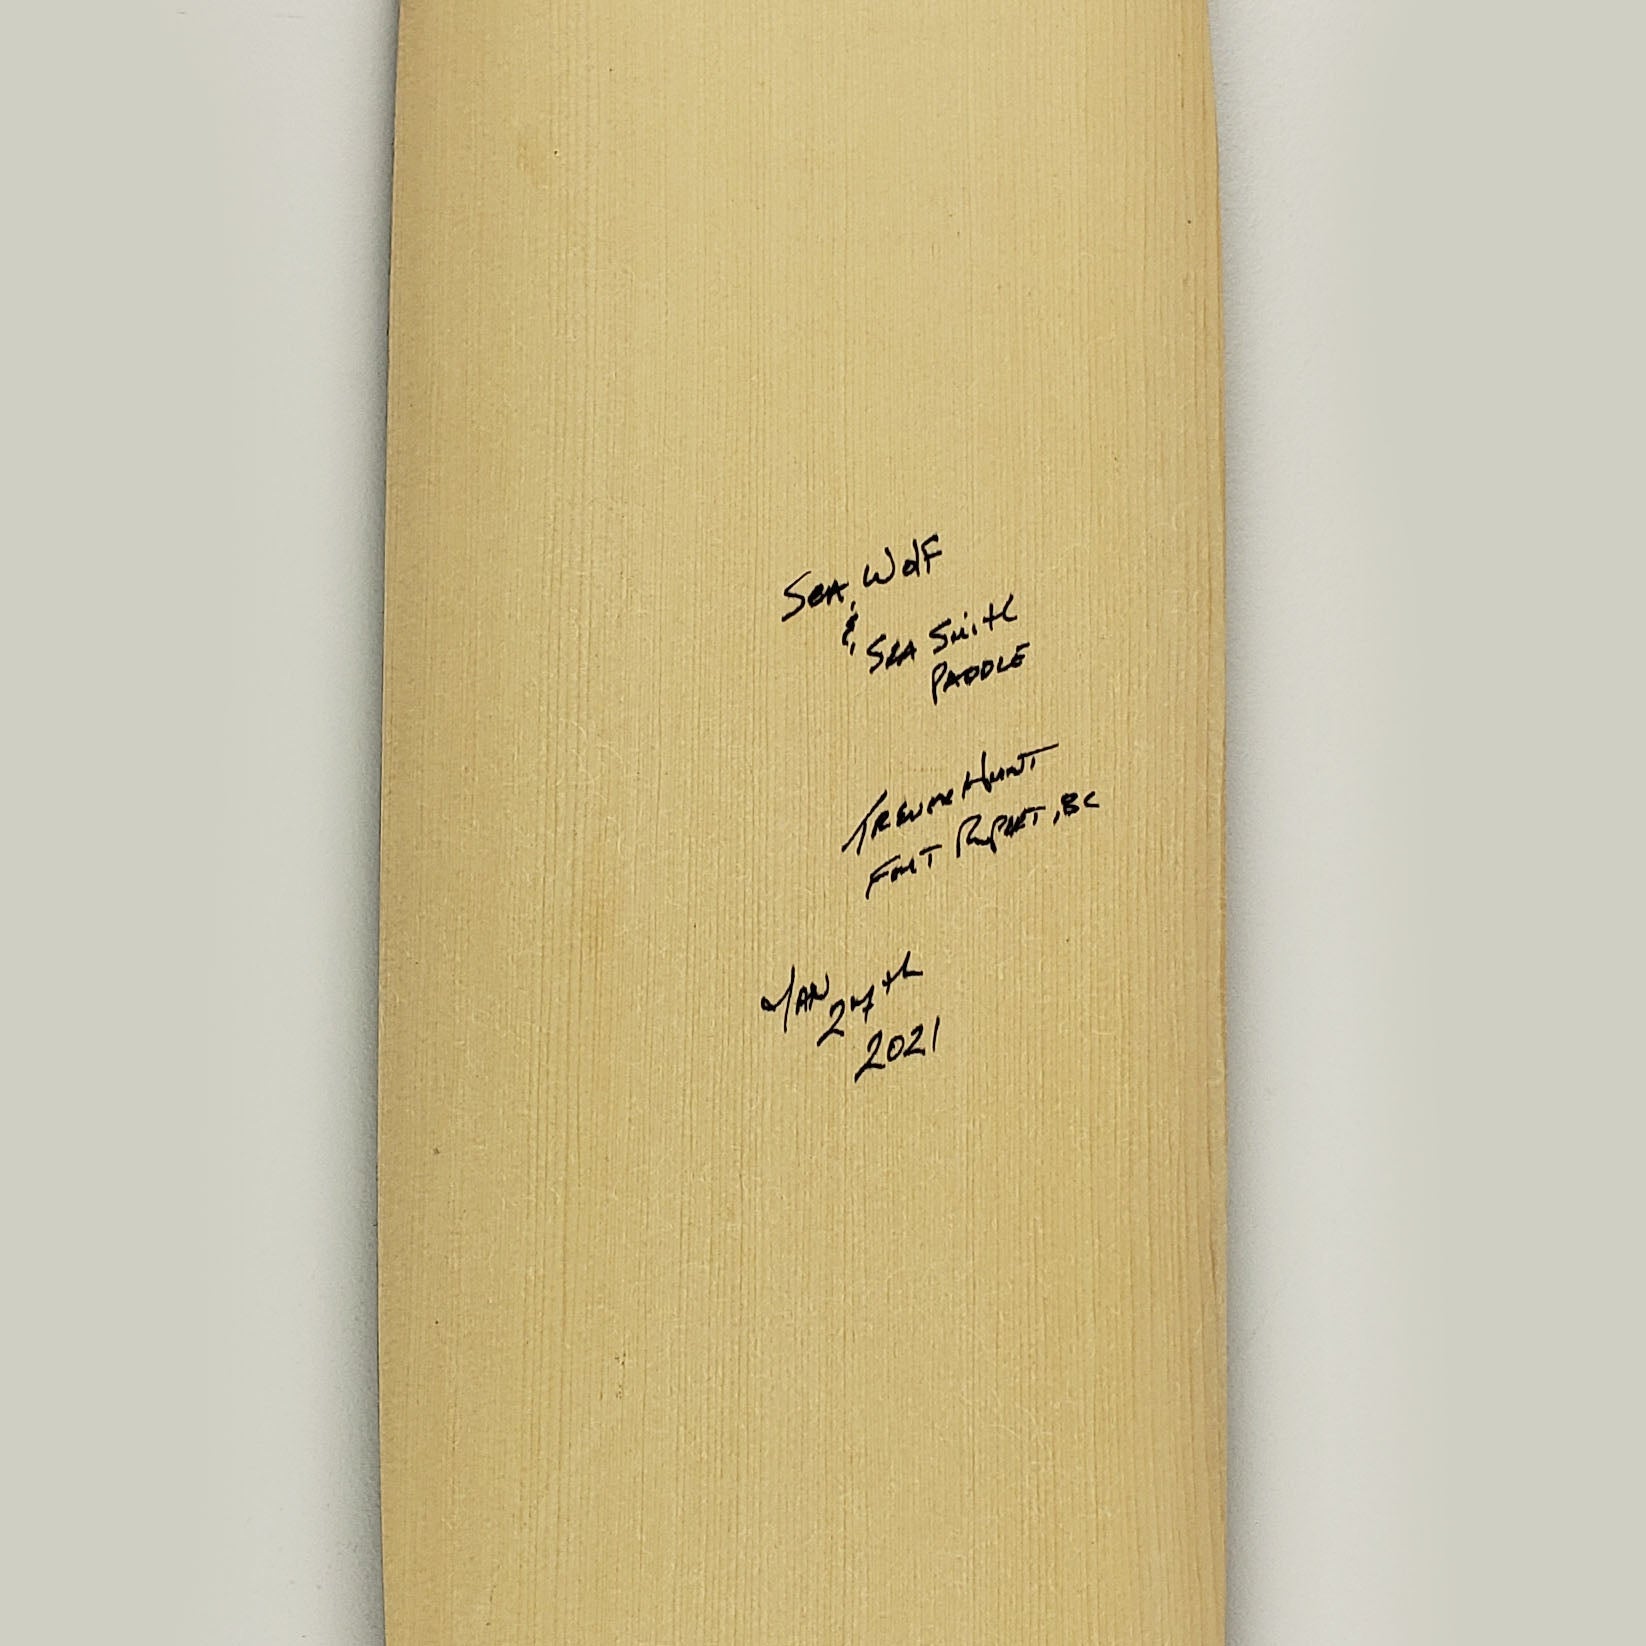 Sea Wolf
&
Sea Smith
Paddle
Trevor Hunt
Fort Rupert, BC
Jan 27th
2021